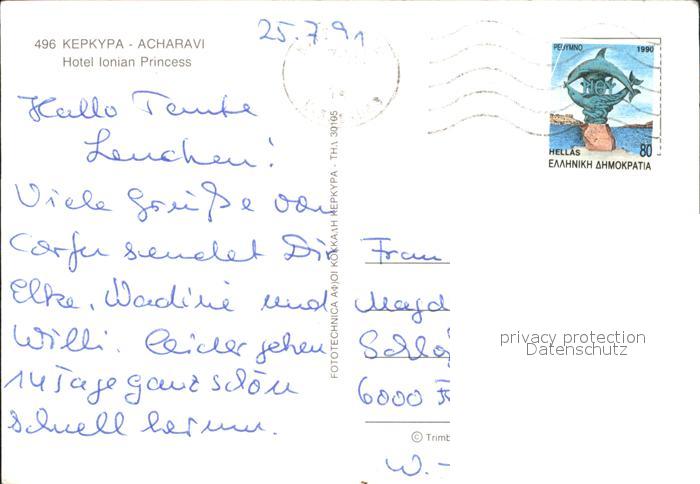 25.7.91
496 ΚΕΡΚΥΡΑ - ACHARAVI
Hotel Ionian Princess
Hallo Tante
Lenchen!
Viele Grüße von
Corfu sendet Dir
Elke, Nadine und
Willi. Leider gehen
14 Tage ganz schön
schnell herum.
FOTOTECHNICA ΑΦΟΙ ΚΟΚΚΑΛΗ ΚΕΡΚΥΡΑ - ΤΗΛ 30105
ΡΕΘΥΜΝΟ 1990
HELLAS 80
ΕΛΛΗΝΙΚΗ ΔΗΜΟΚΡΑΤΙΑ
Frau
Magd
Schlo
6000 F
© Trimb
W.-
privacy protection
Datenschutz